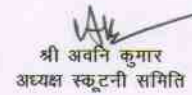 श्री अवनि कुमार
अध्यक्ष स्कूटनी समिति